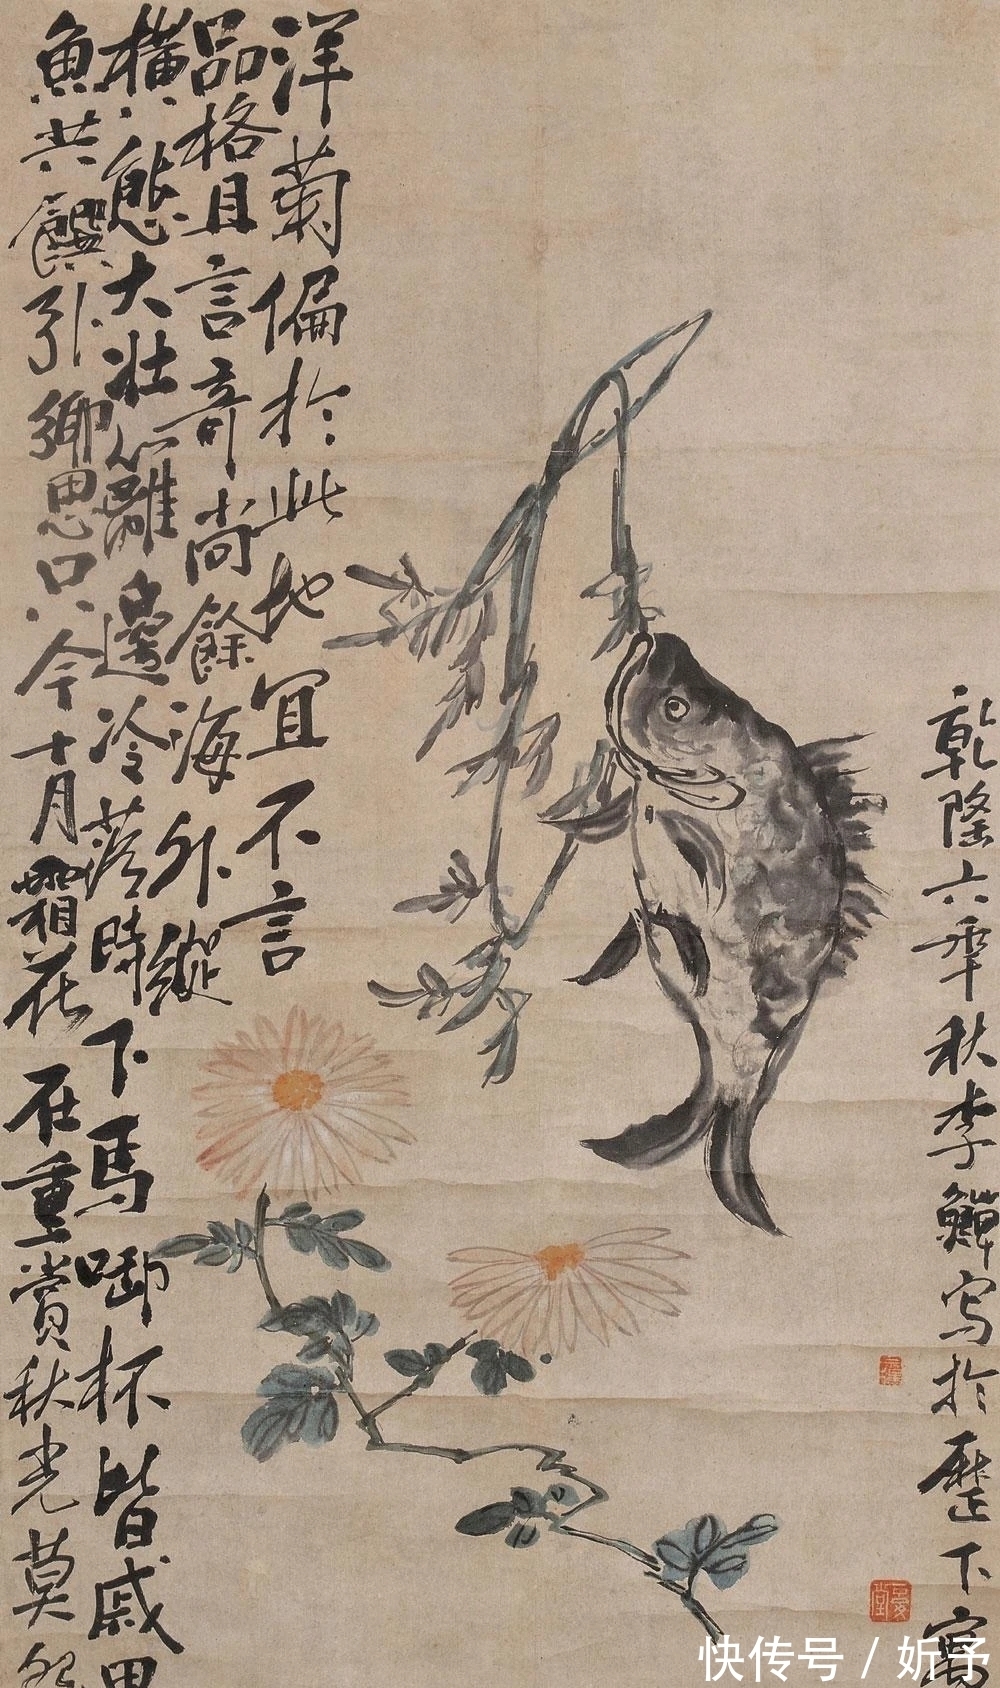 洋菊偏於此地宜不言
品格且言奇尚餘海外縱
橫態大壯籬邊冷落時下馬啣杯皆戚
魚共饌引鄉思只今十月霜花在重賞秋光莫
乾隆六年秋李鱓寫於歷下寓
快传号 / 妡予